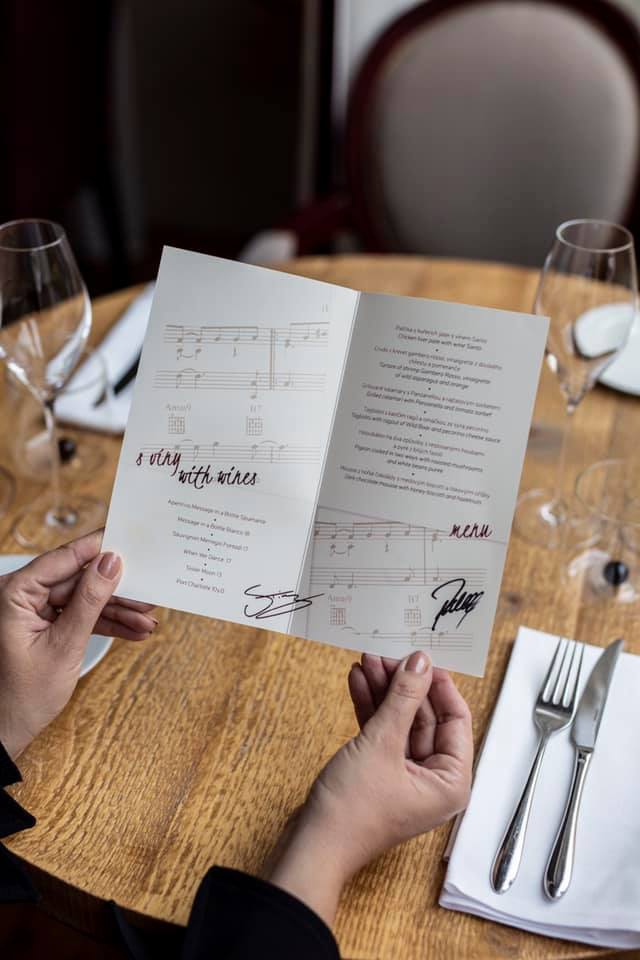 Amm9
B7
s víny
with wines
Aperitivo Message in a Bottle Saumante
Message in a Bottle Bianco 16
Sauvignon Meriggio Fontodi 17
When We Dance 17
Sister Moon 13
Port Charlotte 10y.o
Paštika z kuřecích jater s vínem Santo
Chicken liver pate with wine Santo
Crudo z krevet gambero rosso, vinaigrette z divokého
chřestu a pomeranče
Tartare of shrimp Gambero Rosso, vinaigrette
of wild asparagus and orange
Grilované kalamáry s Panzanellou a rajčatovým sorbetem
Grilled calamari with Panzanella and tomato sorbet
Tagliolini s kančím ragú a omáčkou ze sýra pecorino
Tagliolini with ragout of Wild Boar and pecorino cheese sauce
Holoubátko na dva způsoby s restovanými houbami
a pyré z bílých fazolí
Pigeon cooked in two ways with roasted mushrooms
and white beans puree
Mousse z hořké čokolády s medovým biscotti a lískovými oříšky
Dark chocolate mousse with honey biscotti and hazelnuts
menu
Amm9
B7